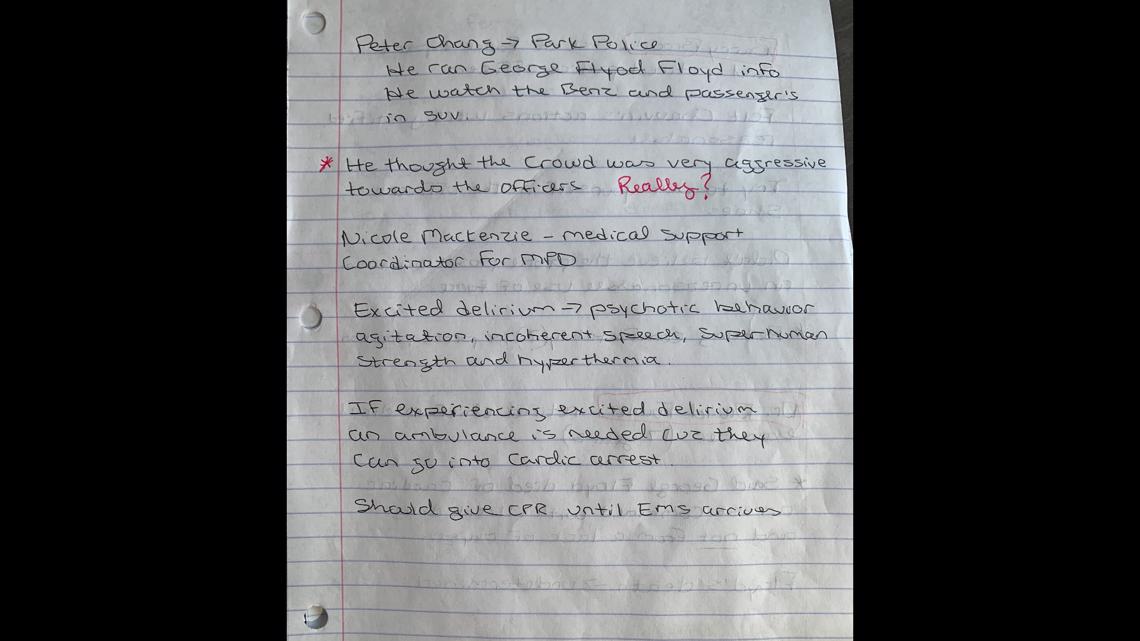 Peter Chang → Park Police
He ran George Flyod Floyd info
He watch the Benz and passenger's
in SUV.
* He thought the crowd was very aggressive
towards the officers Really?
Nicole Mackenzie - medical support
Coordinator for MPD
Excited delirium → psychotic behavior
agitation, incoherent speech, superhuman
strength and hyperthermia.
If experiencing excited delirium
an ambulance is needed cuz they
can go into cardic arrest.
Should give CPR until EMS arrives